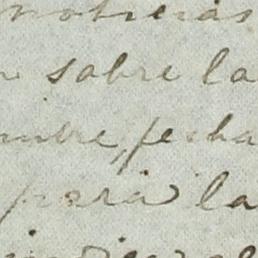 noticias
sobre la
mbre, fecha
para la